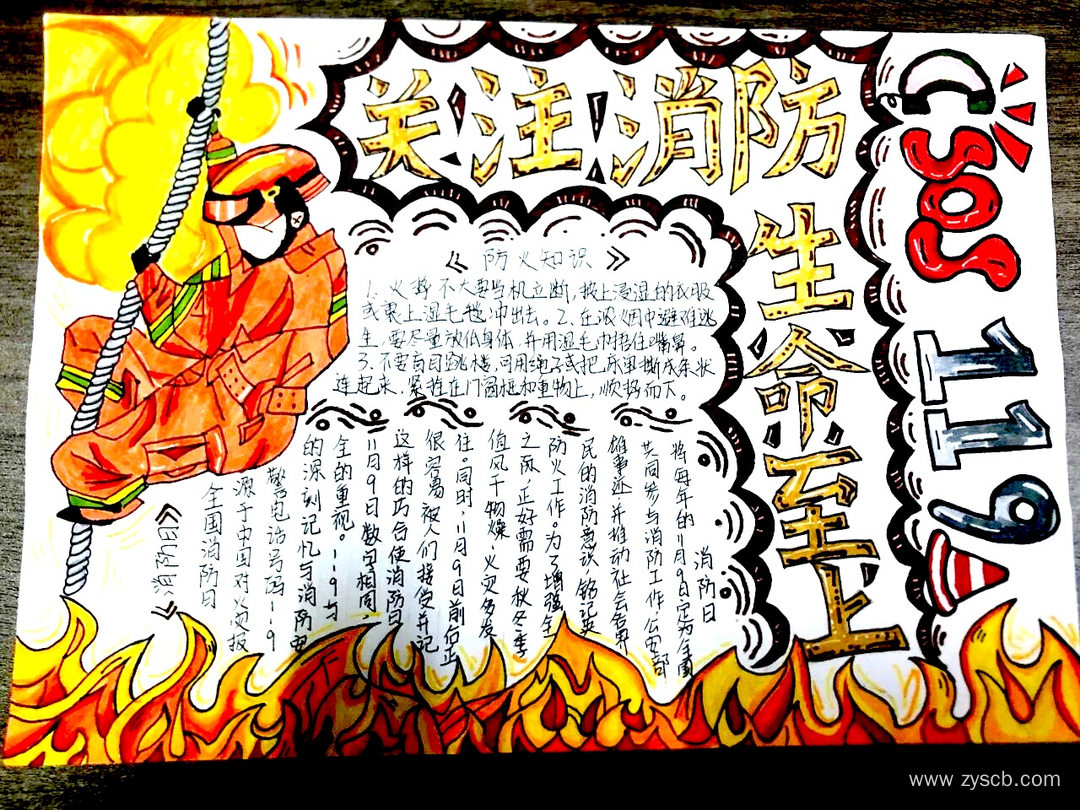 关注消防
生命至上
SOS
119
《防火知识》
1、火势不大要当机立断,披上浸湿的衣服
或裹上湿毛毯冲出去。2、在浓烟中避难逃
生,要尽量放低身体,并用湿毛巾捂住嘴鼻。
3、不要盲目跳楼,可用绳子或把床单撕成条状
连起来,紧拴在门窗框和重物上,顺势而下。
《消防日》
全国消防日
源于中国对火灾报
警电话号码119
的深刻记忆与消防安
全的重视。119与
11月9日数字相同
这样的巧合使消防日
很容易被人们接受并记
住。同时11月9日前后正
值风干物燥、火灾多发
之际,正好需要秋冬季
防火工作。为了增强全
民的消防意识铭记英
雄事迹并推动社会各界
共同参与消防工作,公安部
将每年的11月9日定为全国
消防日
www.zyscb.com